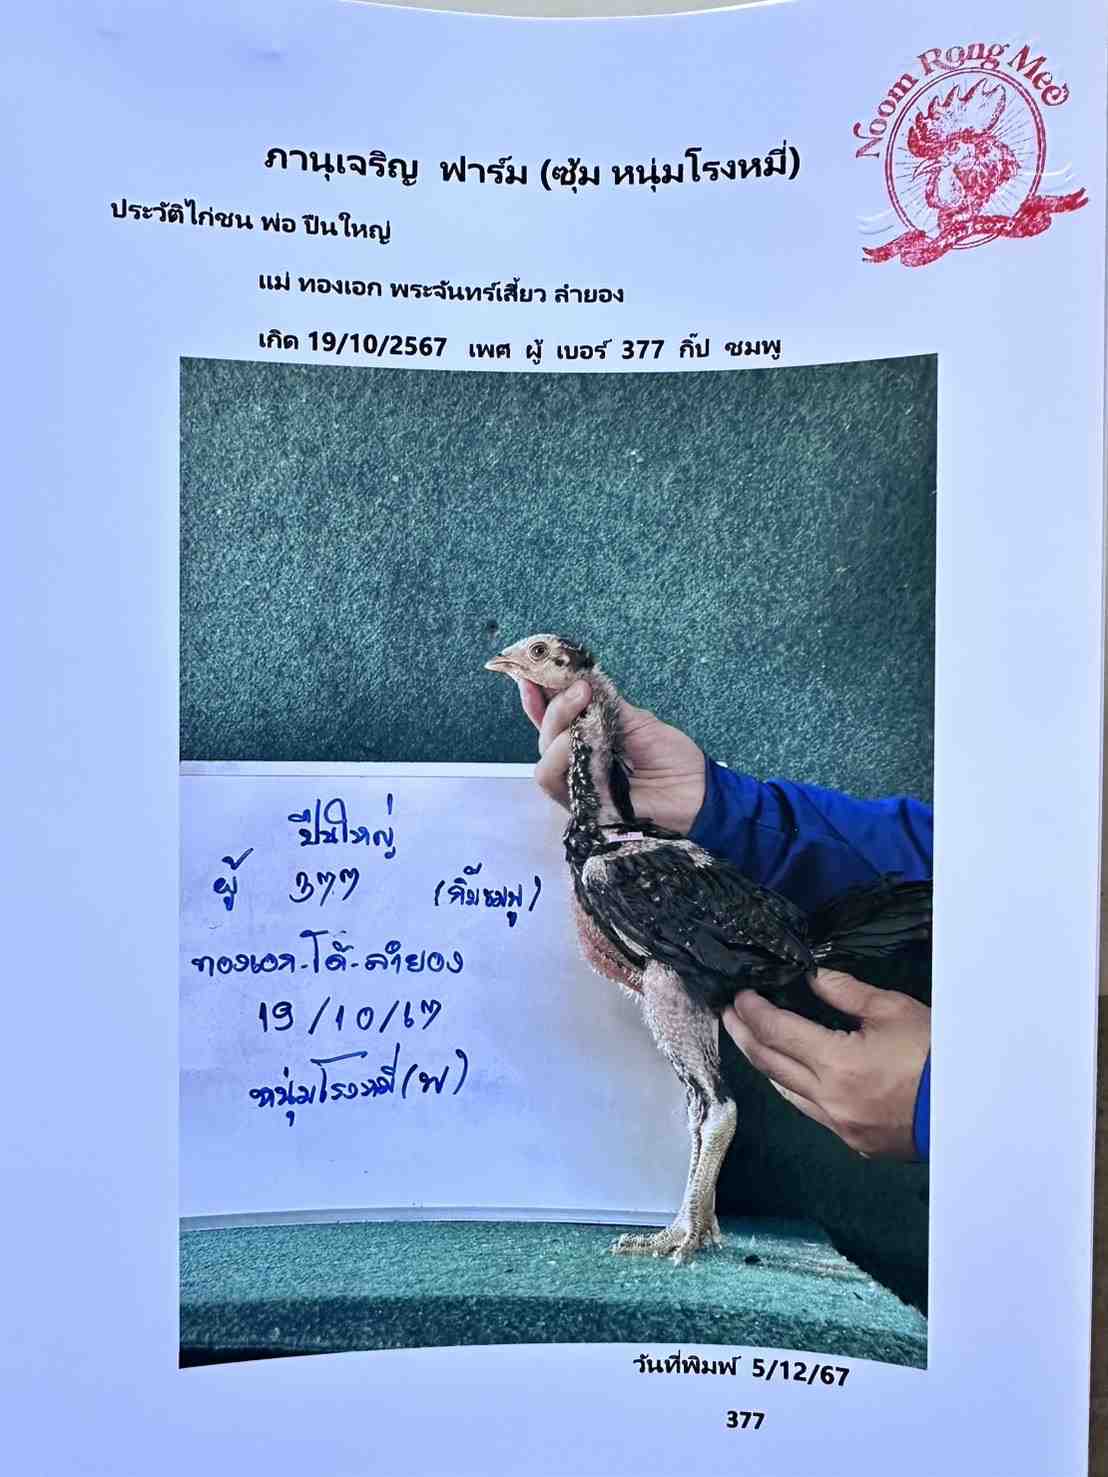 Noom Rong Mee
ภานุเจริญ ฟาร์ม (ซุ้ม หนุ่มโรงหมี่)
ประวัติไก่ชน พ่อ ปืนใหญ่
แม่ ทองเอก พระจันทร์เสี้ยว ลำยอง
เกิด 19/10/2567 เพศ ผู้ เบอร์ 377 กิ๊ป ชมพู
ปืนใหญ่
ผู้ 377 (กิ๊บชมพู)
ทองเอก-โด้-ลำยอง
19/10/67
หนุ่มโรงหมี่ (พ)
วันที่พิมพ์ 5/12/67
377